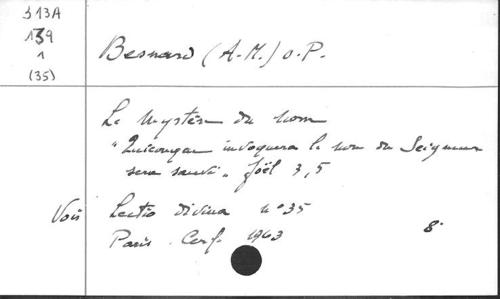 313A
139
1
(35)
Besnard (A.-M.) o.P.
Le Mystère du nom
"Quiconque invoquera le nom du Seigneur
sera sauvé" Joël 3,5
Voir Lectio divina n° 35
Paris. Cerf. 1963 8°